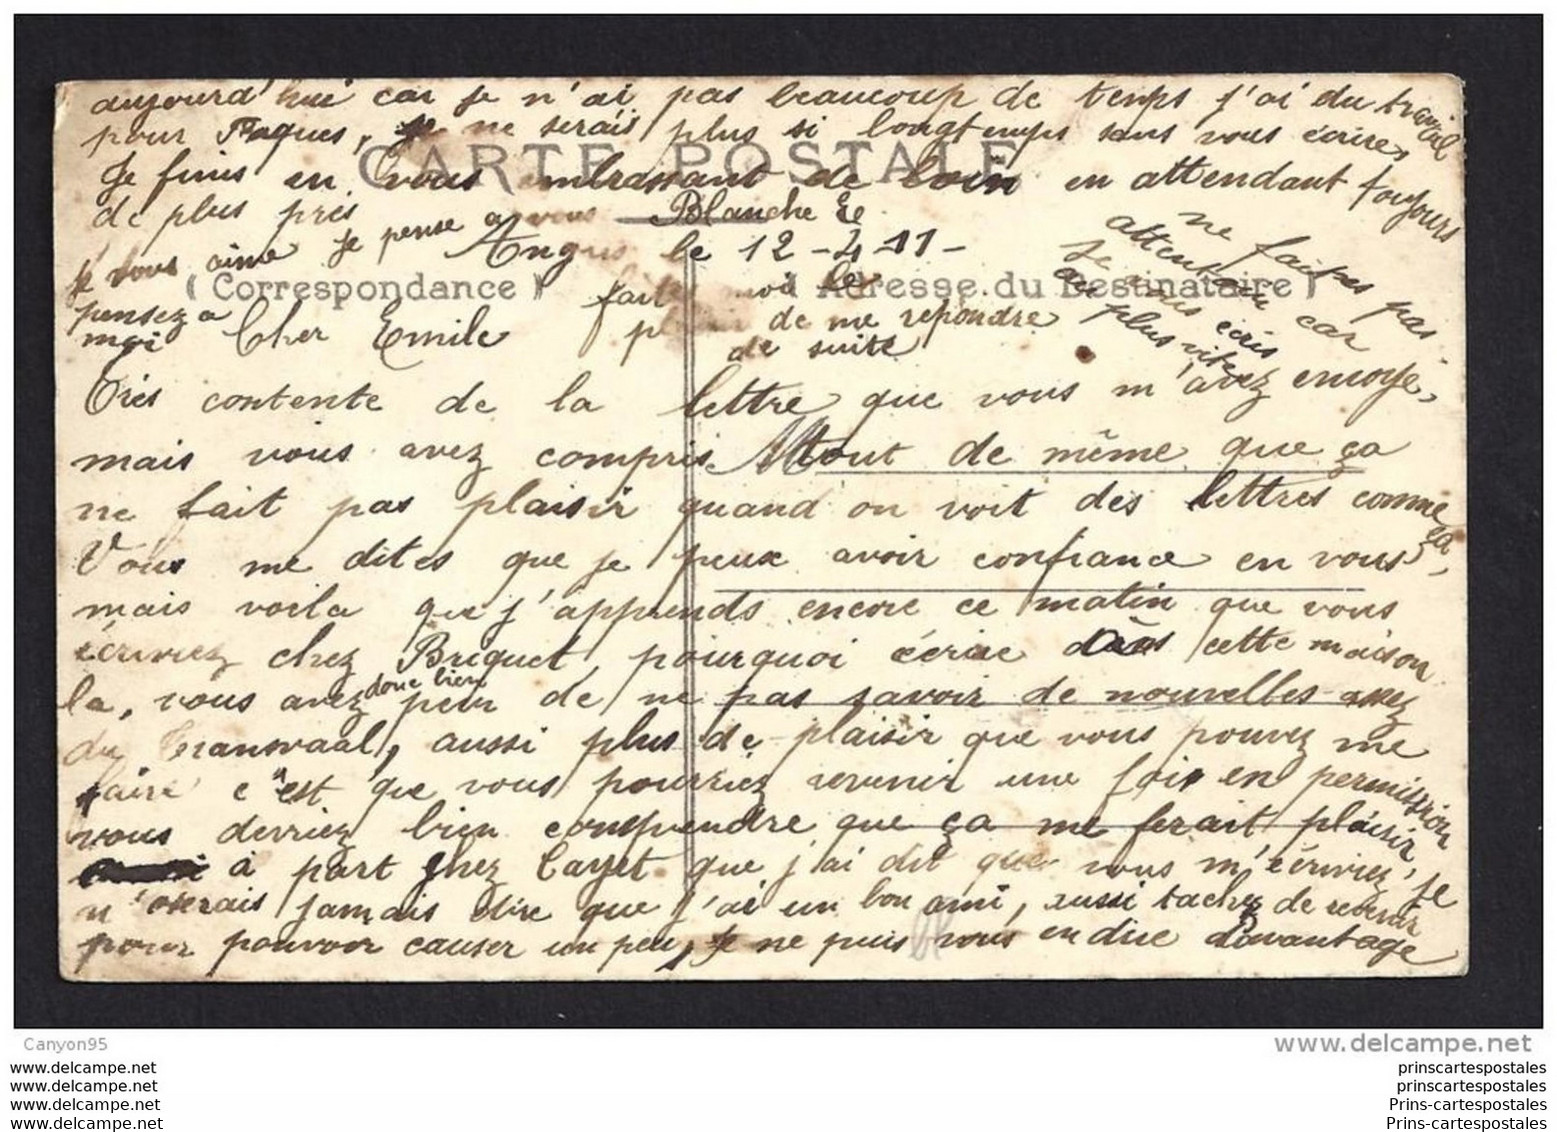 aujourd'hui car je n'ai pas beaucoup de temps j'ai du travail
pour Paques, je ne serais plus si longtemps sans vous écrire,
CARTE POSTALE
Je finis en vous embrassant de loin en attendant toujours
de plus près Blanche
je vous aime je pense a vous
pensez a
moi
le 12-4 11-
(Correspondance) (Adresse du Destinataire)
faite moi le
de me repondre
de suite
ne faites pas
attention car
je vous écris
au plus vite
Cher Emile
Très contente de la lettre que vous m'avez envoyé,
mais vous avez compris tout de même que ça
ne fait pas plaisir quand on voit des lettres comme ça,
Vous me dites que je peux avoir confiance en vous
mais voila que j'apprends encore ce matin que vous
écriviez chez Briquet, pourquoi écrire dans cette maison
la, vous avez donc bien peur de ne pas savoir de nouvelles assez
du Transvaal, aussi plus de plaisir que vous pouvez me
faire c'est que vous pourriez revenir une fois en permission
vous derriez bien comprendre que ça me ferait plaisir,
à part chez Cayet que j'ai dit que vous m'écriviez, je
n'oserais jamais dire que j'ai un bon ami, aussi tachez de revenir
pour pouvoir causer un peu, Je ne puis vous en dire Davantage
Canyon95
www.delcampe.net
www.delcampe.net
www.delcampe.net
www.delcampe.net
www.delcampe.net
prinscartespostales
prinscartespostales
Prins-cartespostales
Prins-cartespostales